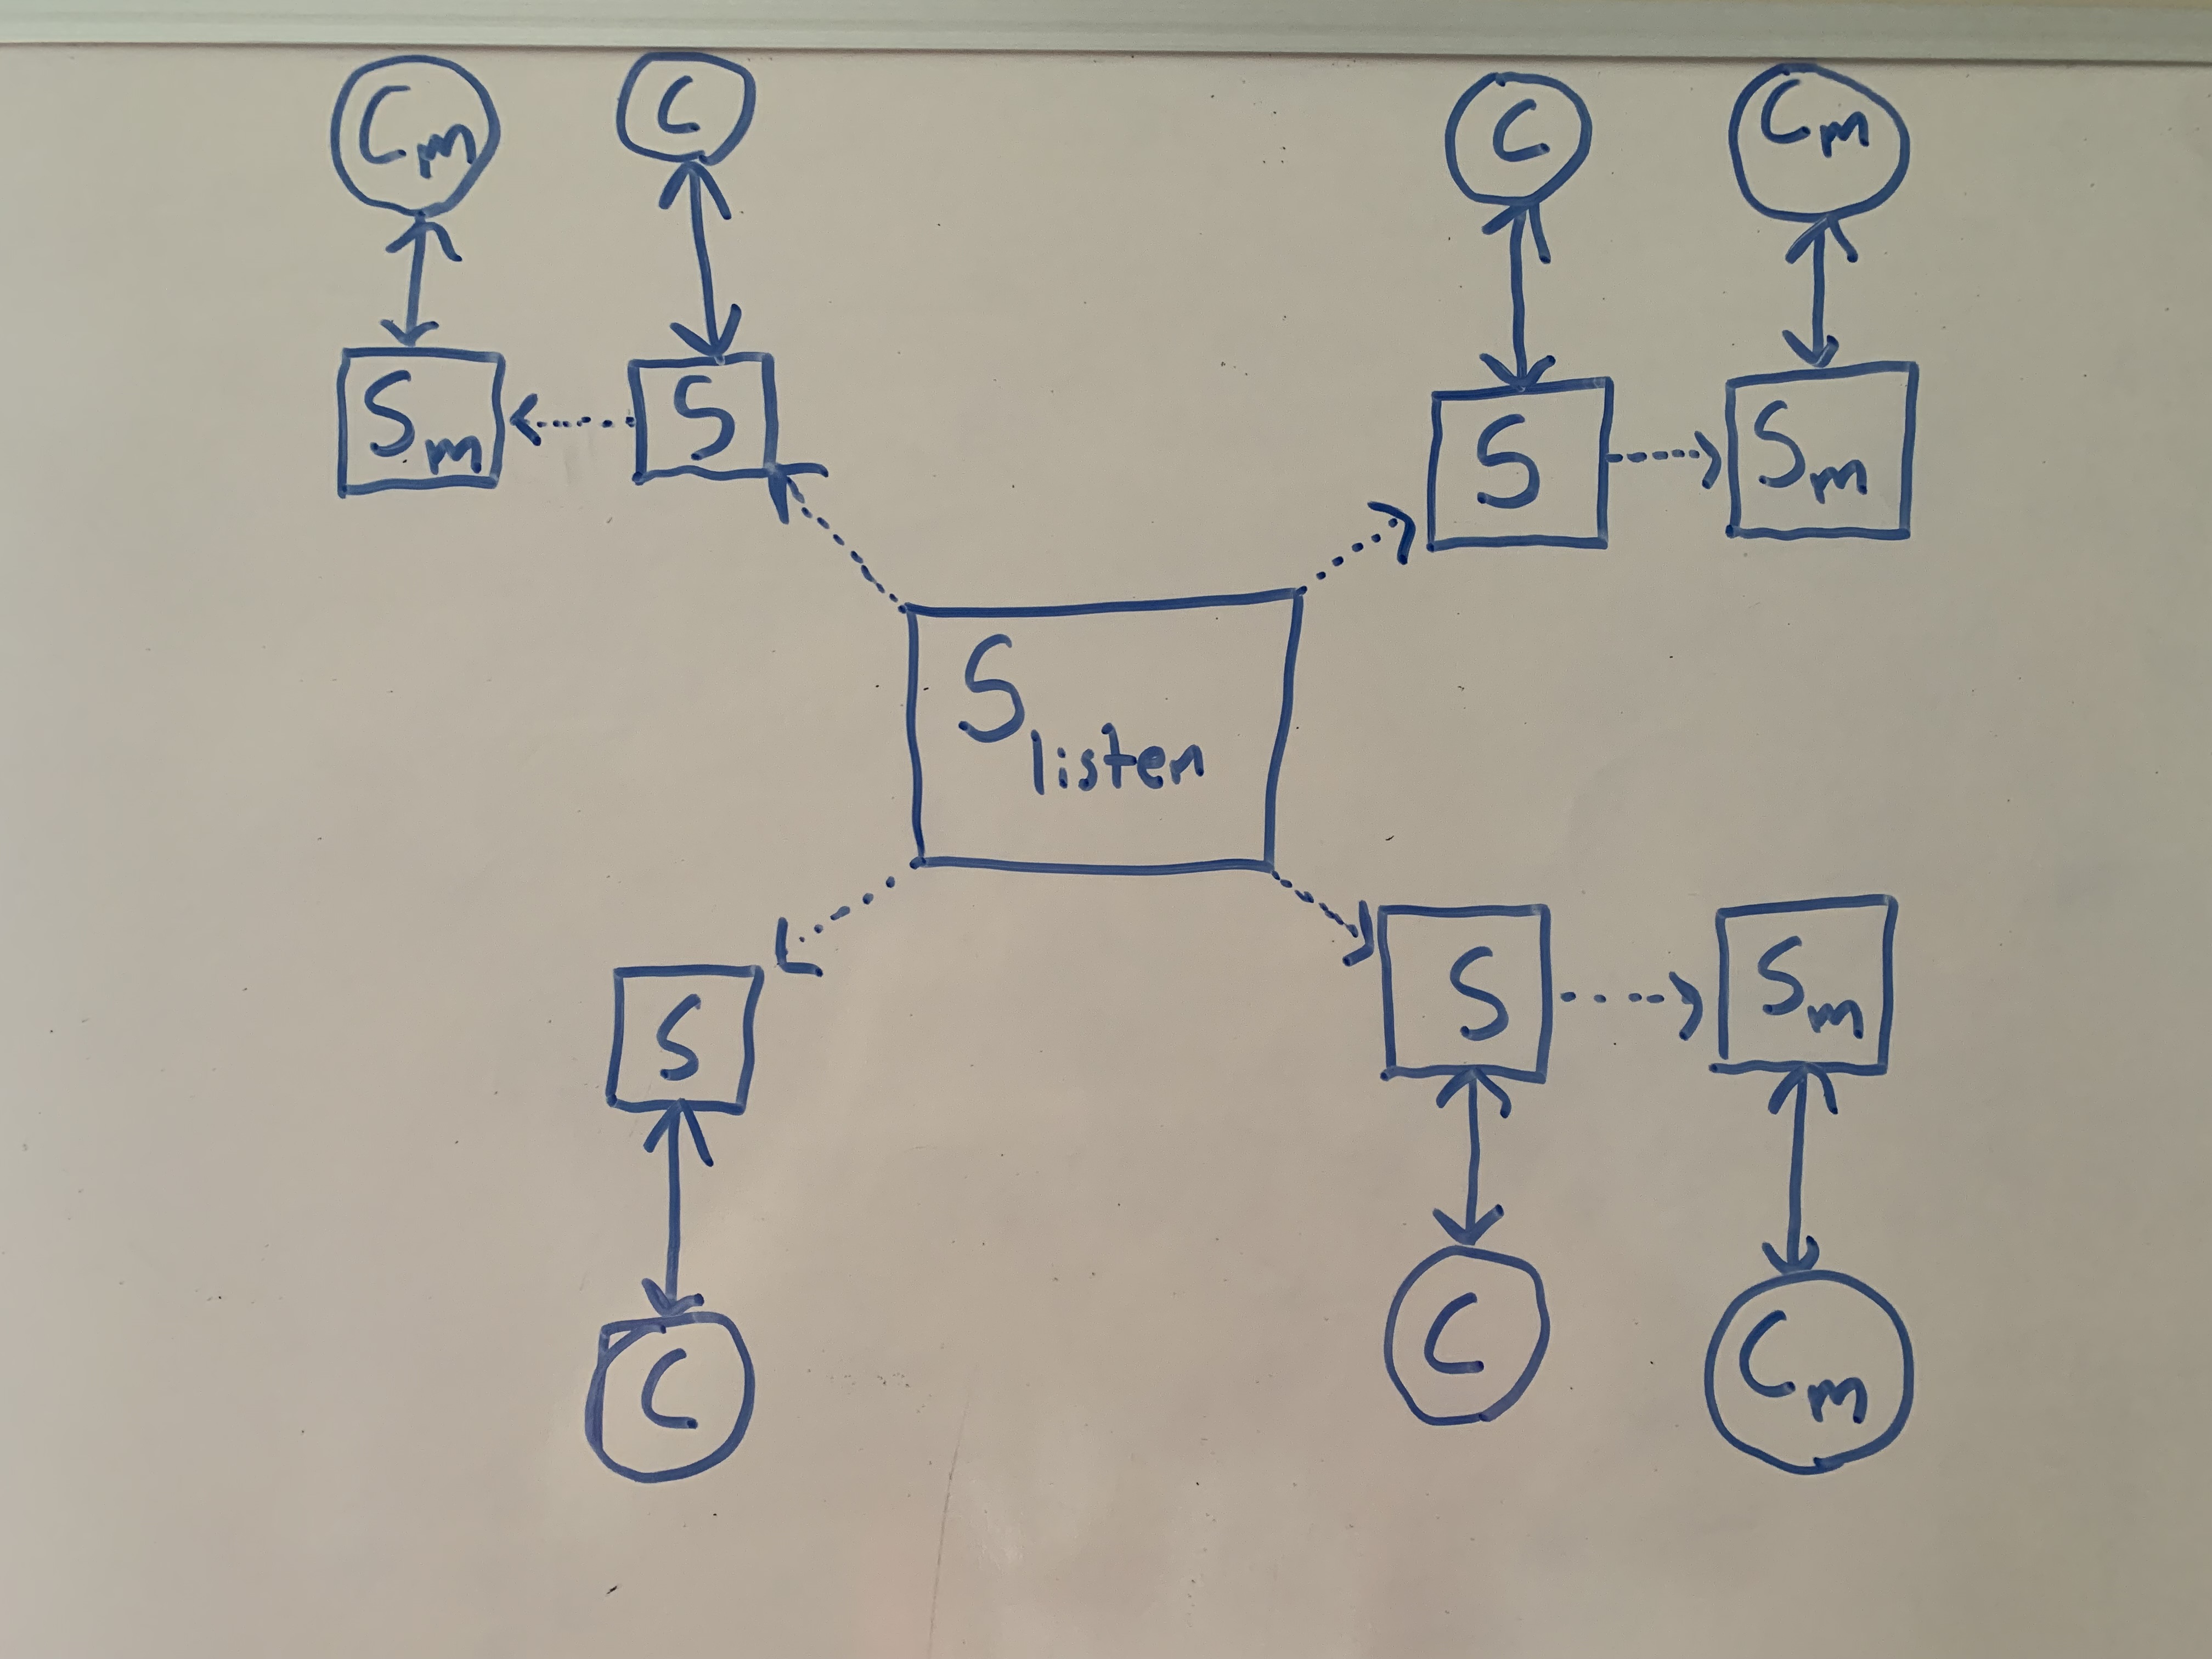 Cm C C Cm
Sm S S Sm
S listen
S S Sm
C C Cm